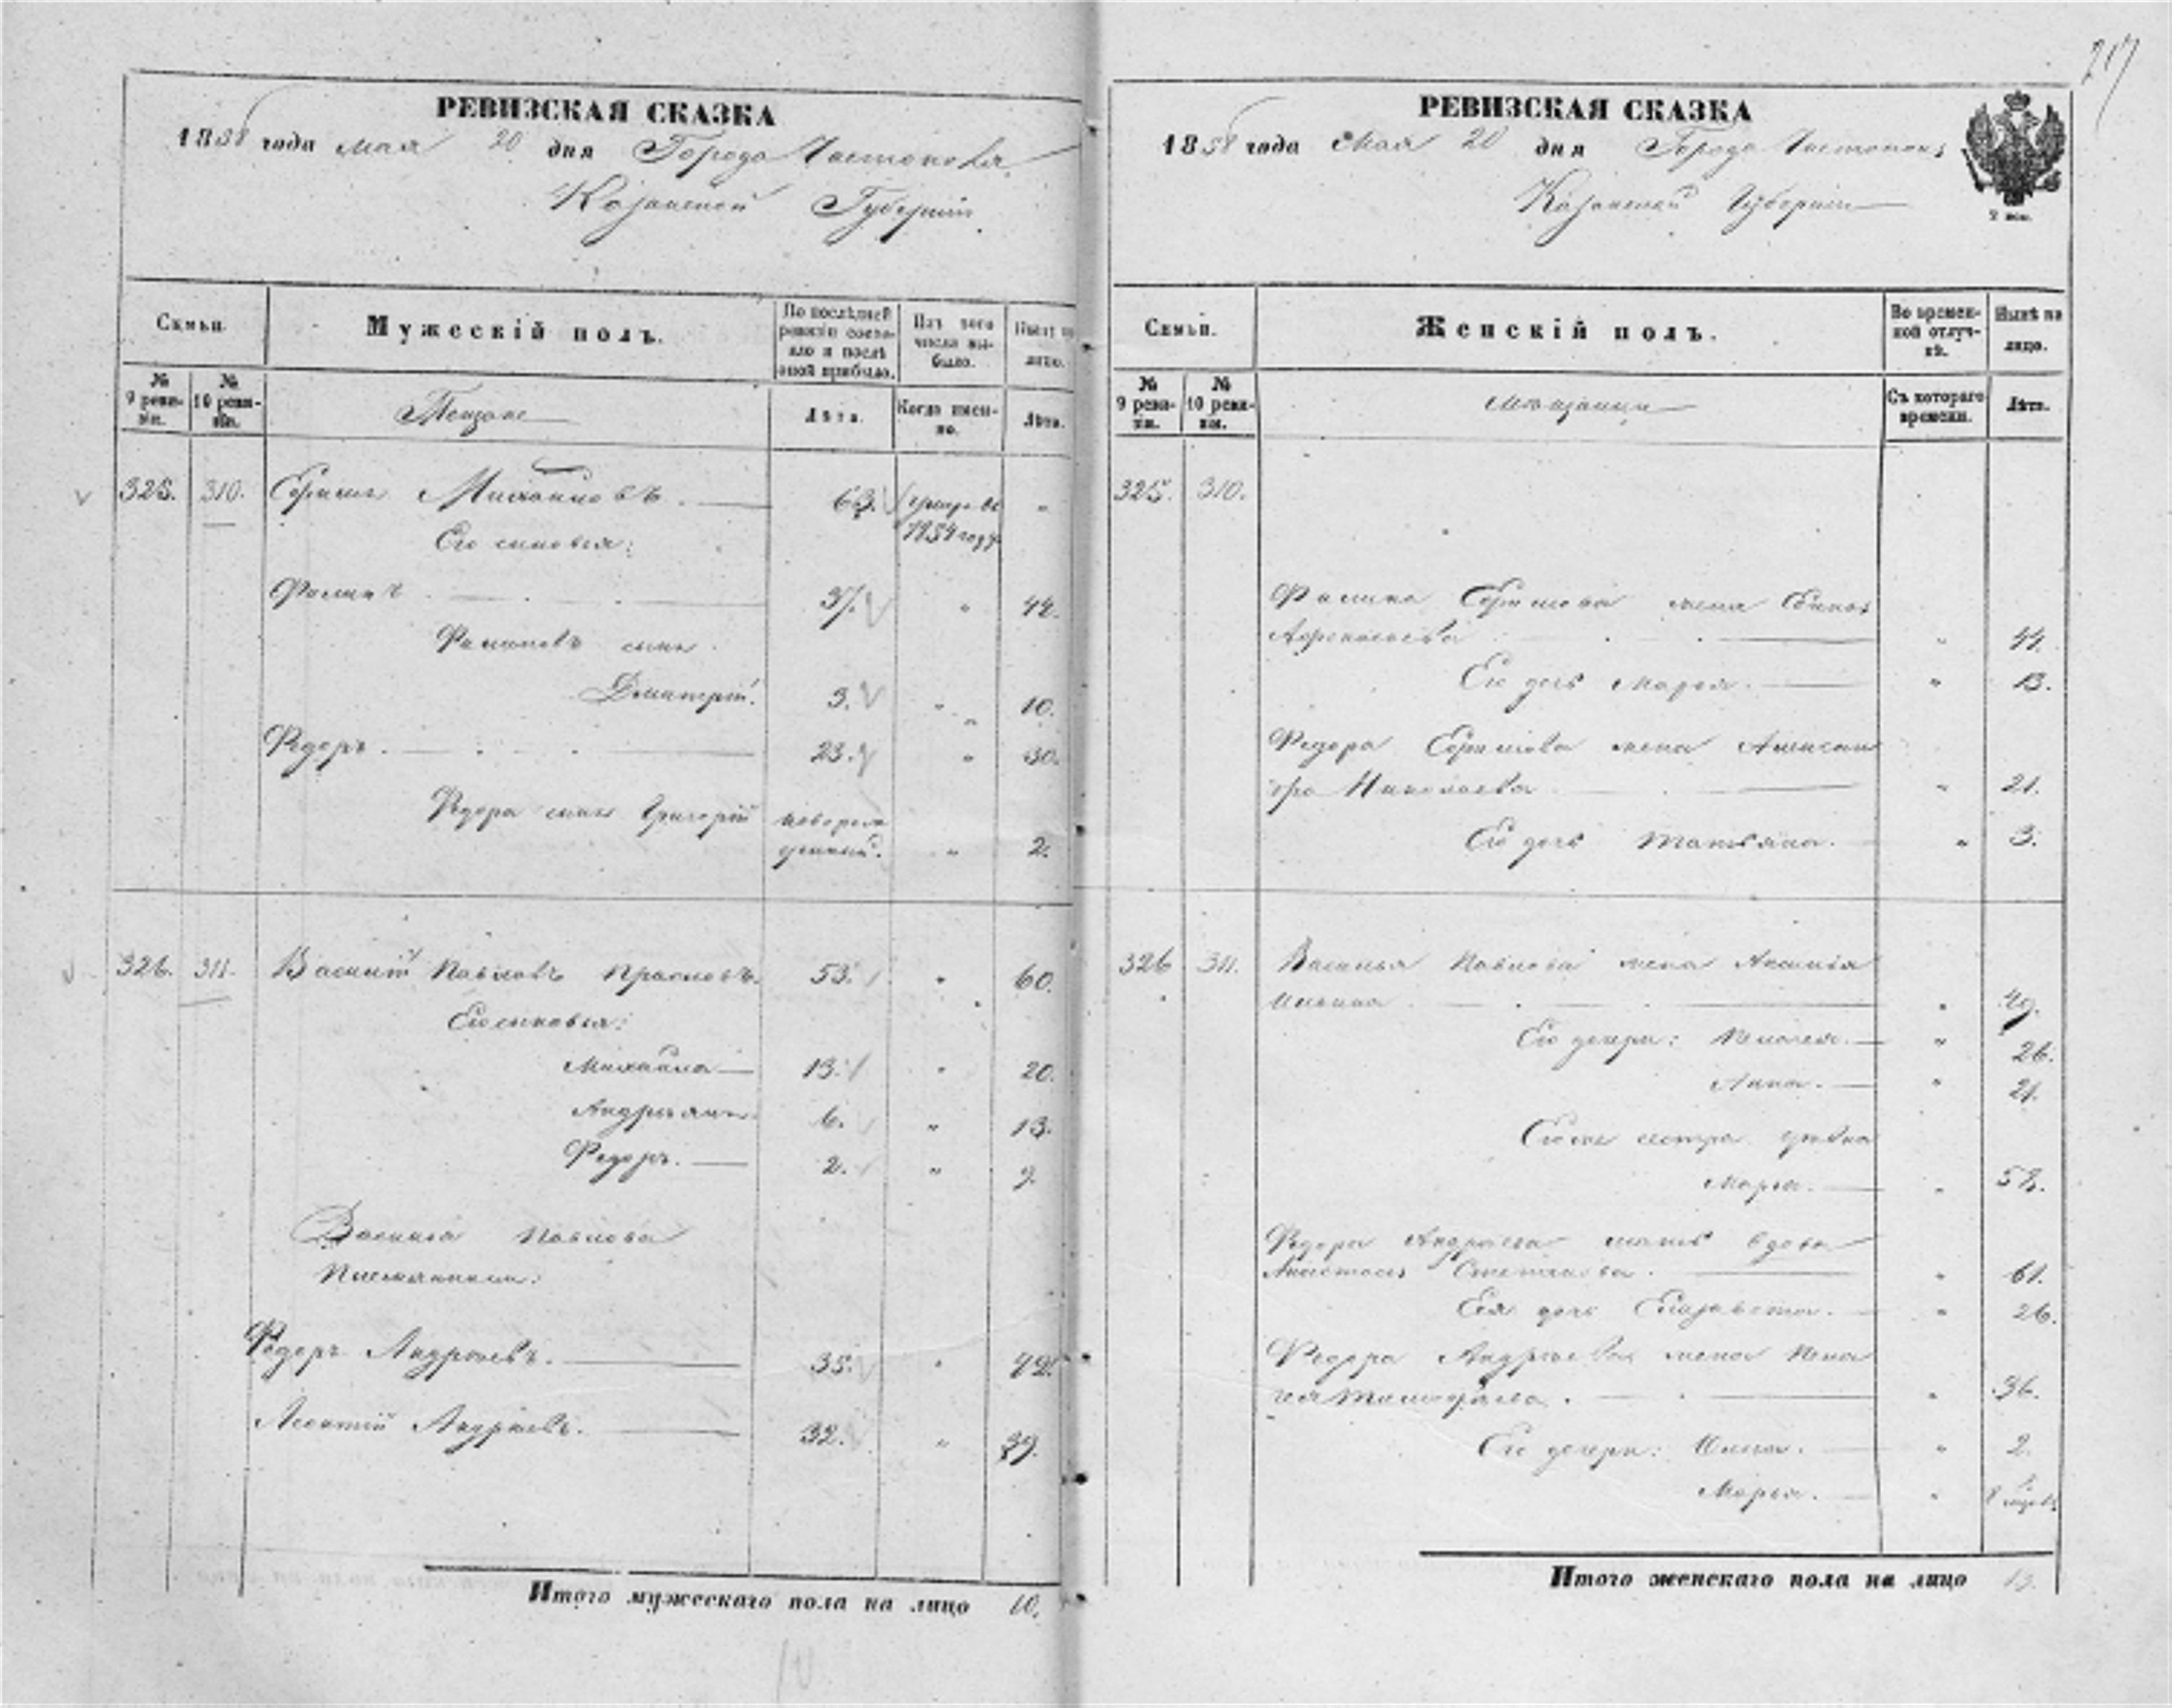 217
РЕВИЗСКАЯ СКАЗКА
1858 года мая 20 дня Города Чистополя
Казанской Губернии
Семьи.
Мужескій полъ.
По послѣдней ревизіи состояло и послѣ оной прибыло.
Изъ того числа выбыло.
Нынѣ на лицо.
№ 9 ревизіи.
№ 10 ревизіи.
Мещане
Лѣта.
Когда именно.
Лѣта.
325. 310. Ефимъ Михайловъ. 63. умеръ въ 1854 году "
Его сыновья:
Филипъ 37. " 44.
Филиповъ сынъ
Дмитрій. 3. " 10.
Федоръ. 23. " 30.
Федора сынъ Григорій новорожденный. " 2.
326. 311. Василій Павловъ 53. " 60.
Его сыновья:
Михайла 13. " 20.
Андреянъ. 6. " 13.
Федоръ. 2. " 9.
Василья Павлова
Племянники:
Федоръ Андреевъ. 35. " 42.
Леонтій Андреевъ. 32. " 39.
Итого мужескаго пола на лицо 10.
10
РЕВИЗСКАЯ СКАЗКА
1858 года Мая 20 дня Города Чистополя
Казанской Губерніи
2 коп.
Семьи.
Женскій полъ.
Во временной отлучкѣ.
Нынѣ на лицо.
№ 9 ревизіи.
№ 10 ревизіи.
Мѣщанки
Съ котораго времени.
Лѣта.
325. 310.
Филипа Ефимова жена
" 44.
Его дочь Марья. " 13.
Федора Ефимова жена Александра Николаева " 21.
Его дочь Татьяна. " 3.
326 311. Василья Павлова жена Аксинья
Ильина " 49.
Его дочери: Пелагея. " 26.
Анна. " 21.
Его же сестра девка
Марья. " 58.
Федора Андреева мать вдова
Анастасья Степанова. " 61.
Ея дочь Елизавета. " 26.
Федора Андреева жена Пелагея Тимофеева. " 36.
Его дочери: " 2.
Марья. "
Итого женскаго пола на лицо 13.